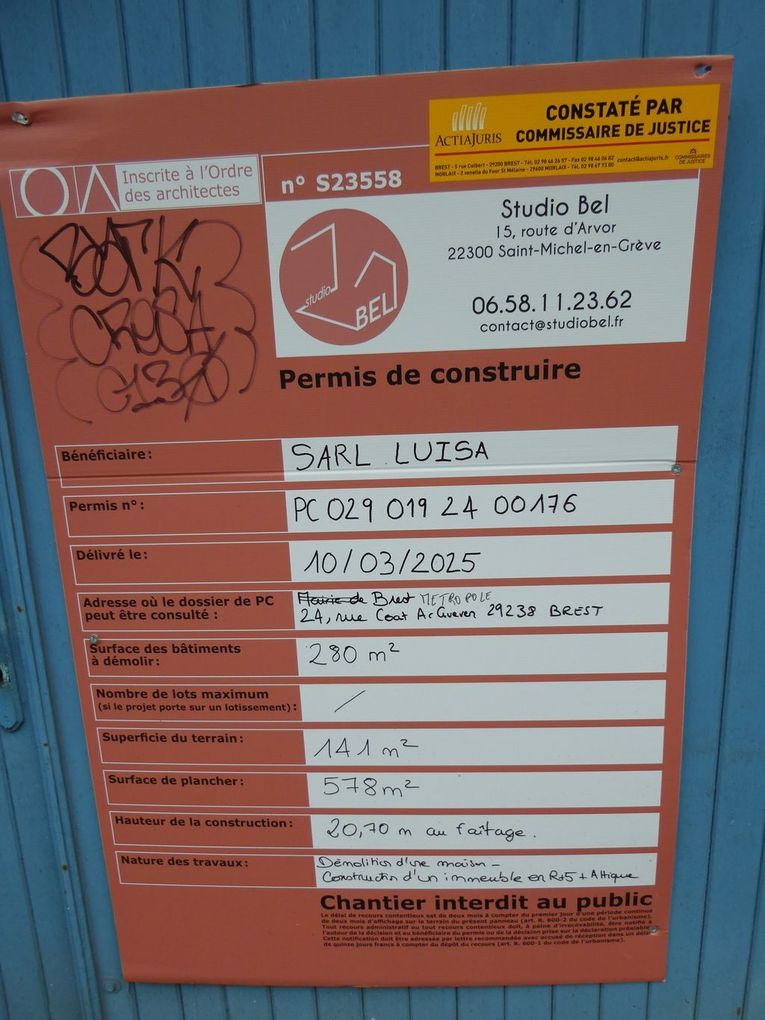 ACTIAJURIS
CONSTATÉ PAR
COMMISSAIRE DE JUSTICE
BREST - 5 rue Colbert - 29200 BREST - Tél. 02 98 44 26 57 - Fax 02 98 46 06 82
MORLAIX - 2 venelle du Four St Mélaine - 29600 MORLAIX - Tél. 02 98 67 73 80
contact@actiajuris.fr
COMMISSAIRES
DE JUSTICE
Inscrite à l'Ordre
des architectes
n° S23558
studio
BEL
Studio Bel
15, route d'Arvor
22300 Saint-Michel-en-Grève
06.58.11.23.62
contact@studiobel.fr
Permis de construire
Bénéficiaire: SARL LUISA
Permis n°: PC 029 019 24 00176
Délivré le: 10/03/2025
Adresse où le dossier de PC
peut être consulté :
Mairie de Brest METROPOLE
24, rue Coat Ar Gueven 29238 BREST
Surface des bâtiments
à démolir: 280 m²
Nombre de lots maximum
(si le projet porte sur un lotissement): /
Superficie du terrain: 141 m²
Surface de plancher: 578 m²
Hauteur de la construction: 20,70 m au faîtage.
Nature des travaux: Démolition d'une maison -
Construction d'un immeuble en R+5 + Attique
Chantier interdit au public
Le délai de recours contentieux est de deux mois à compter du premier jour d'une période continue
de deux mois d'affichage sur le terrain du présent panneau (art. R. 600-2 du code de l'urbanisme).
Tout recours administratif ou tout recours contentieux doit, à peine d'irrecevabilité, être notifié à
l'auteur de la décision et au bénéficiaire du permis ou de la décision prise sur la déclaration préalable.
Cette notification doit être adressée par lettre recommandée avec accusé de réception dans un délai
de quinze jours francs à compter du dépôt du recours (art. R. 600-1 du code de l'urbanisme).